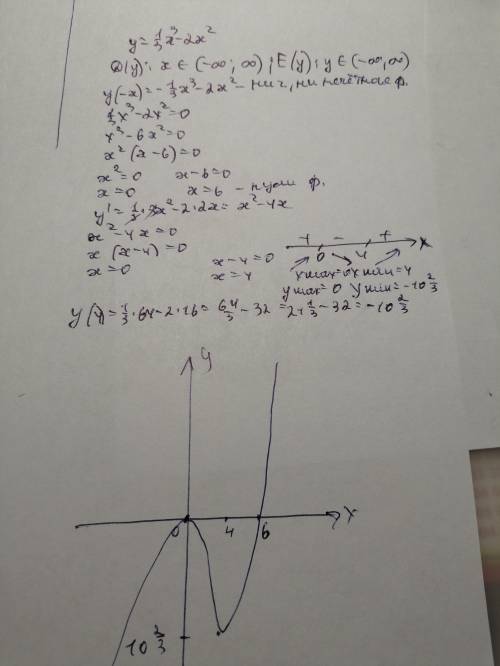 y = 1/3 x³ - 2x²
D(y): x ∈ (-∞; ∞); E(y): y ∈ (-∞; ∞)
y(-x) = -1/3 x³ - 2x² - ни ч, ни нечётная ф.
1/3 x³ - 2x² = 0
x³ - 6x² = 0
x² (x - 6) = 0
x² = 0 x - 6 = 0
x = 0 x = 6 - нули ф.
y' = 1/3 · 3x² - 2 · 2x = x² - 4x
x² - 4x = 0
x (x - 4) = 0 x - 4 = 0
x = 0 x = 4
+ - + x
0 4
xmax = 0 xmin = 4
ymax = 0 ymin = -10 2/3
y(4) = 1/3 · 64 - 2 · 16 = 64/3 - 32 = 21 1/3 - 32 = -10 2/3
y
0 4 6 x
10 2/3